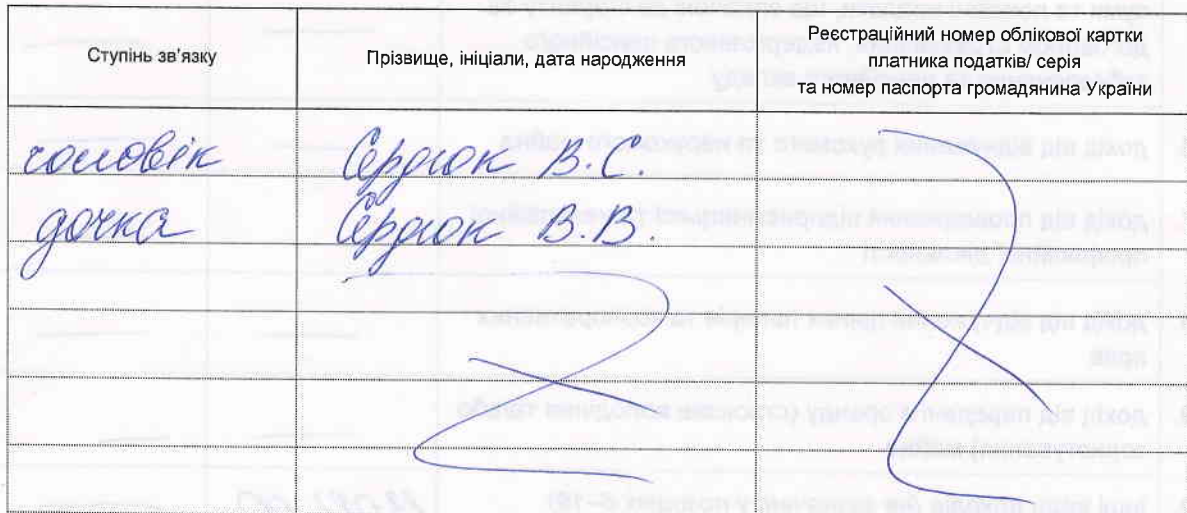 Ступінь зв'язку
Прізвище, ініціали, дата народження
Реєстраційний номер облікової картки
платника податків/ серія
та номер паспорта громадянина України
чоловік Сердюк В.С.
дочка Сердюк В.В.